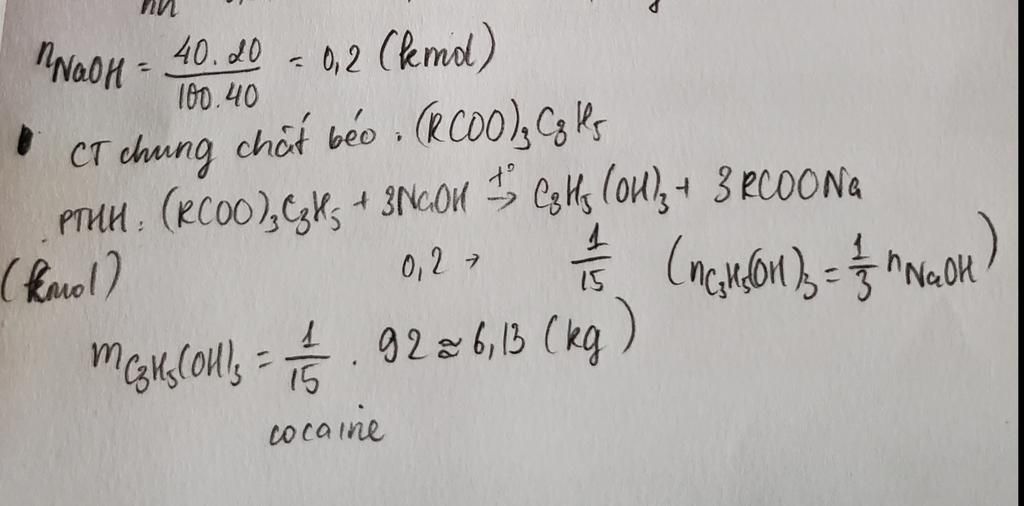 nNaOH = 40.20/100.40 = 0,2 (kmol)
• CT chung chất béo: (RCOO)₃C₃H₅
PTHH: (RCOO)₃C₃H₅ + 3NaOH t°→ C₃H₅(OH)₃ + 3RCOONa
(kmol) 0,2 → 1/15 (nC₃H₅(OH)₃ = 1/3 nNaOH)
mC₃H₅(OH)₃ = 1/15 . 92 ≈ 6,13 (kg)
cocaine